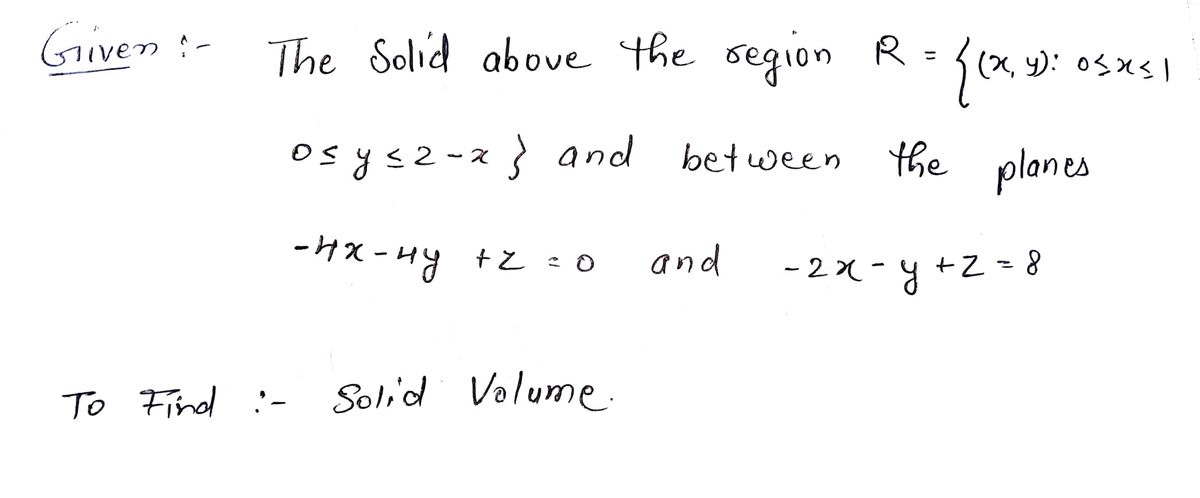 Given :- The Solid above the region R = {(x, y): 0≤x≤1
0≤y≤2-x } and between the planes
-4x-4y +z = 0 and -2x-y+z=8
To Find :- Solid Volume.